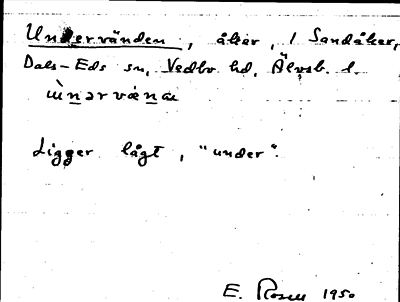 Undervänden, åker, 1 Sandåker,
Dals-Eds sn, Vedbo hd, Älvsb. l.
ùnərvænɑ
Ligger lågt, "under".
E. Rosell 1950